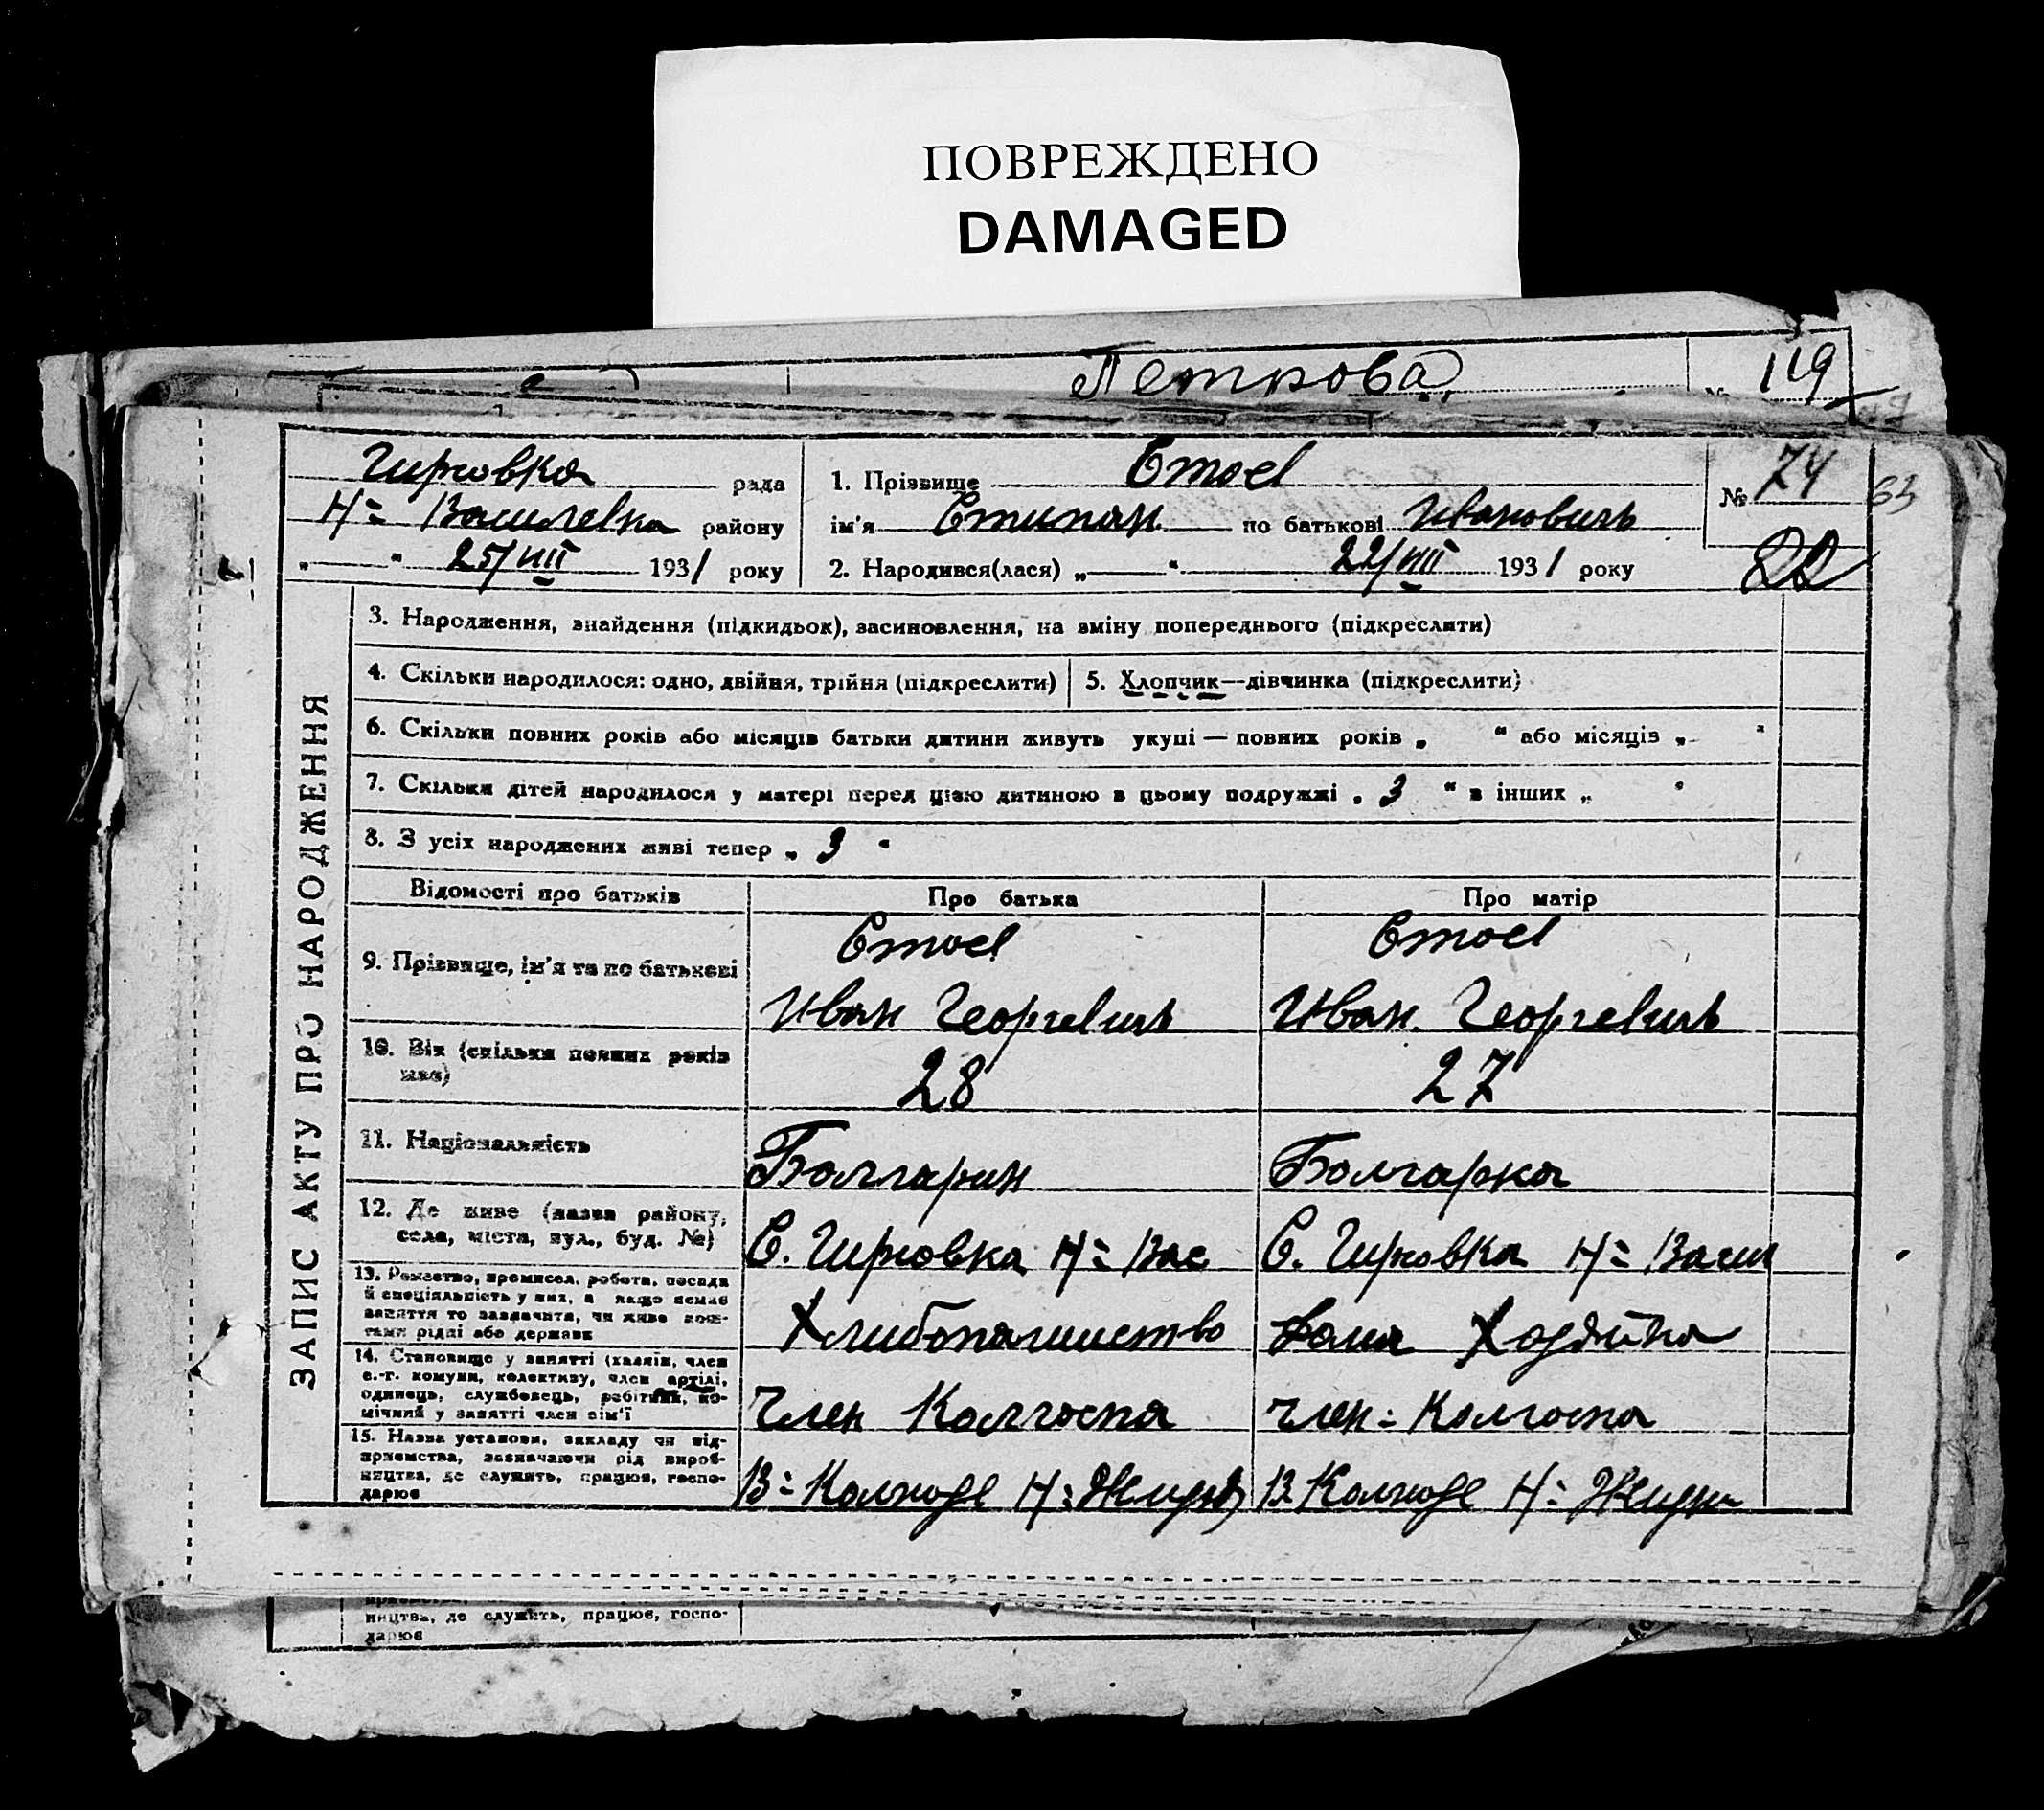 ПОВРЕЖДЕНО
DAMAGED
Петрова
№ 119
Гирсовка рада
Н= Василевка районy
„ “ 25/VIII 1931 року
1. Прізвище Стоев
ім'я Стипан по батькові Ивановичь
2. Народився(лася) „ “ 22/VIII 1931 року
№ 74
63
22
ЗАПИС АКТУ ПРО НАРОДЖЕННЯ
3. Народження, знайдення (підкидьок), засиновлення, на зміну попереднього (підкреслити)
4. Скільки народилося: одно, двійня, трійня (підкреслити)
5. Хлопчик—дівчинка (підкреслити)
6. Скільки повних років або місяців батьки дитини живуть укупі — повних років „ “ або місяців „ “
7. Скільки дітей народилося у матері перед цією дитиною в цьому подружжі „ 3 “ в інших „ “
8. З усіх народжених живі тепер „ 3 “
Відомості про батьків Про батька Про матір
9. Прізвище, ім'я та по батькові
Стоев
Иван Георгевичь
Стоев
Иван Георгевичь
10. Вік (скільки повних років
має)
28
27
11. Національність
Болгарин
Болгарка
12. Де живе (назва району,
села, міста, вул., буд. №)
С. Гирсовка Н= Вас
С. Гирсовка Н= Васил
13. Ремество, промисел, робота, посада
й спеціяльність у них, а якщо немає
заняття то зазначити, чи живе кош-
тами рідні або держави
Хлибопашиство
Дома Хозяйка
14. Становище у занятті (хазяїн, член
с.-г. комуни, колективу, член артілі,
одинець, службовець, робітник, по-
мічний у занятті член сім'ї
Член Колгоспа
Член= Колгоспа
15. Назва установи, закладу чи під-
приємства, зазначаючи рід вироб-
ництва, де служить, працює, госпо-
дарює
В= Колхозе Н=
В. Колхозе Н=
ництва, де служить, працює, госпо-
дарює